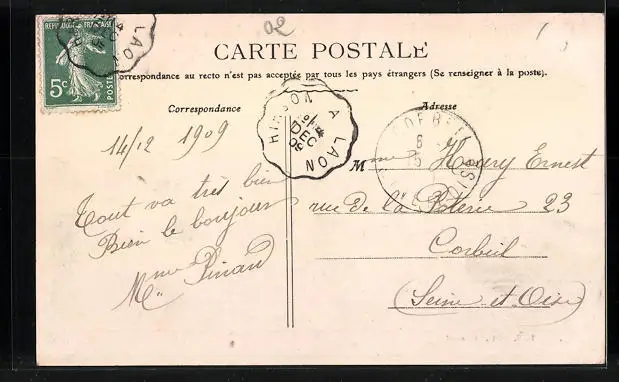 02
REPUBLIQUE FRANÇAISE
5c
POSTES
LAON
CARTE POSTALE
Correspondance au recto n'est pas acceptée par tous les pays étrangers (Se renseigner à la poste).
Correspondance
Adresse
HIRSON A LAON
14
DEC
09
CORBEIL
14/12 1909
Tout va très bien
Bien le bonjour
Mme Pinard
Mme Houry Ernest
rue de la Poterie 23
Corbeil
(Seine et Oise)